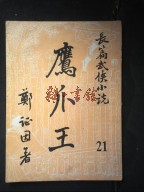 長篇武俠小說
鷹爪王
鄭証因著
21